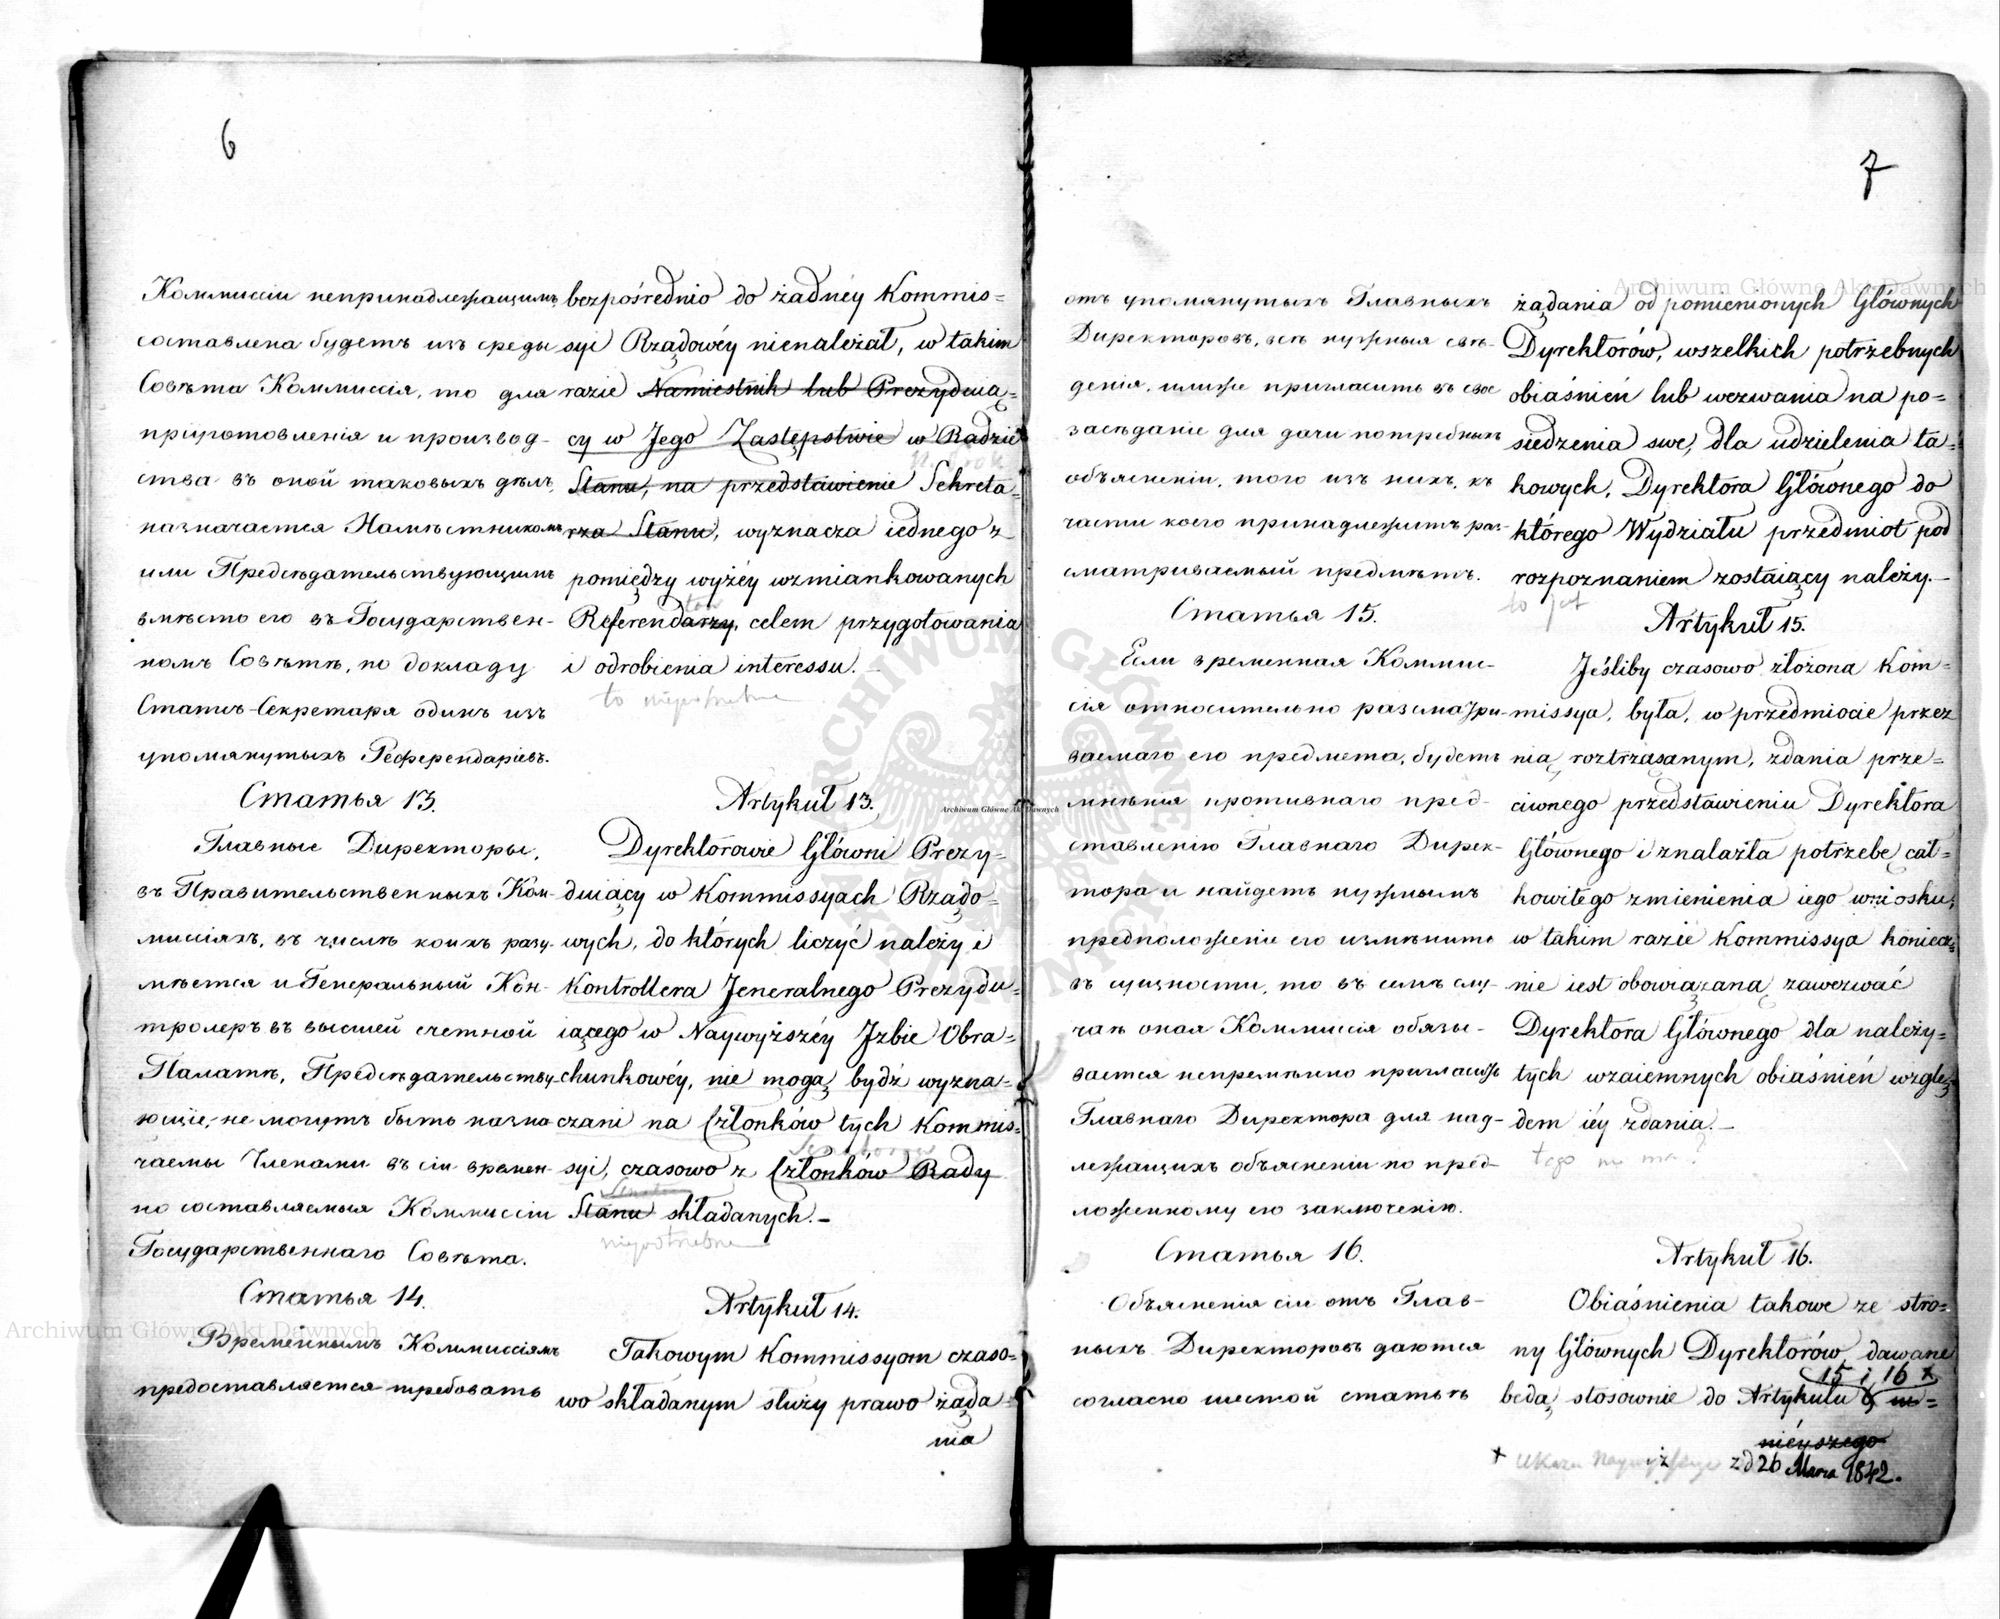 6
Коммисіи непринадлежащимъ
составлена будетъ изъ среды
Совѣта Коммиссія, то для
пріуготовленія и производ-
ства въ оной таковыхъ дѣлъ,
назначается Намѣстникомъ
или Предсѣдательствующимъ
вмѣсто его въ Государствен-
номъ Совѣтѣ, по докладу
Статсъ-Секретаря одинъ изъ
упомянутыхъ Референдаріевъ.
Статья 13.
Главные Директоры,
въ Правительственныхъ Ком-
миссіяхъ, въ числѣ коихъ разу-
мѣется и Генеральный Кон-
тролеръ въ высшей счетной
Палатѣ, Предсѣдательству-
ющіе, не могутъ быть назна-
чаемы Членами въ сіи времен-
но составляемыя Коммиссіи
Государственнаго Совѣта.
Статья 14.
Временнымъ Коммиссіямъ
предоставляется требовать
bezpośrednio do żadnéy Kommis=
syi Rządowéy nienależał, w takim
razie Namiestnik lub Prezyduią=
cy w Jego Zastępstwie w Radzie
Stanu, na przedstawienie Sekreta=
rza Stanu, wyznacza iednego z
pomiędzy wyżéy wzmiankowanych
Referendarzy, celem przygotowania
i odrobienia interessu.—
to niepotrzebne
Artykuł 13.
Dyrektorowie Główni Prezy=
duiący w Kommissyach Rządo=
wych, do których liczyć należy i
Kontrollera Jeneralnego Prezydu=
iącego w Naywyższéy Jzbie Obra=
chunkowéy, nie mogą bydź wyzna=
czani na Członków tych Kommis=
syi, czasowo z Członków Rady
Stanu składanych.—
niepotrzebne
Artykuł 14.
Takowym Kommissyom czaso=
wo składanym służy prawo żąda=
nia
7
отъ упомянутыхъ Главныхъ
Директоровъ, всѣ нужныя свѣ-
денія, или же пригласить въ свое
засѣданіе для дачи потребныхъ
объясненіи, того изъ нихъ, къ
части коего принадлежитъ раз-
сматриваемый предмѣтъ.
Статья 15.
Если временная Коммис-
сія относительно разсматри-
ваемаго ею предмета, будетъ
мнѣнія противнаго пред-
ставленію Главнаго Дирек-
тора и найдетъ нужнымъ
предположеніе его измѣнить
въ сущности, то въ семъ слу-
чаѣ оная Коммиссія обязы-
вается непремѣнно пригласить
Главнаго Директора для над-
лежащихъ объясненіи по пред-
ложенному ею заключенію.
Статья 16.
Объясненія сіи отъ Глав-
ныхъ Директоровъ даются
согласно шестой статьѣ
żądania od pomienionych Głównych
Dyrektorów, wszelkich potrzebnych
obiaśnień lub wezwania na po=
siedzenia swe, dla udzielenia ta=
kowych, Dyrektora Głównego do
którego Wydziału przedmiot pod
rozpoznaniem zostaiący należy.—
to jest
Artykuł 15.
Jeśliby czasowo złożona Kom=
missya, była, w przedmiocie przez
nią roztrząsanym, zdania prze=
ciwnego przedstawieniu Dyrektora
Głównego i znalazła potrzebę cał=
kowitego zmienienia iego wniosku,
w takim razie Kommissya koniecz=
nie iest obowiązaną zawezwać
Dyrektora Głównego dla należy=
tych wzaiemnych obiaśnień wzglę=
dem iéy zdania.—
tego nie ma?
Artykuł 16.
Obiaśnienia takowe ze stro=
ny Głównych Dyrektorów dawane
15 i 16 +
będą stosownie do Artykułu 6 ni=
niéyszego
+ Ukazu Naywyższego z d 26 Marca 1842.
Archiwum Główne Akt Dawnych
Archiwum Główne Akt Dawnych
Archiwum Główne Akt Dawnych
ARCHIWUM GŁÓWNE AKT DAWNYCH